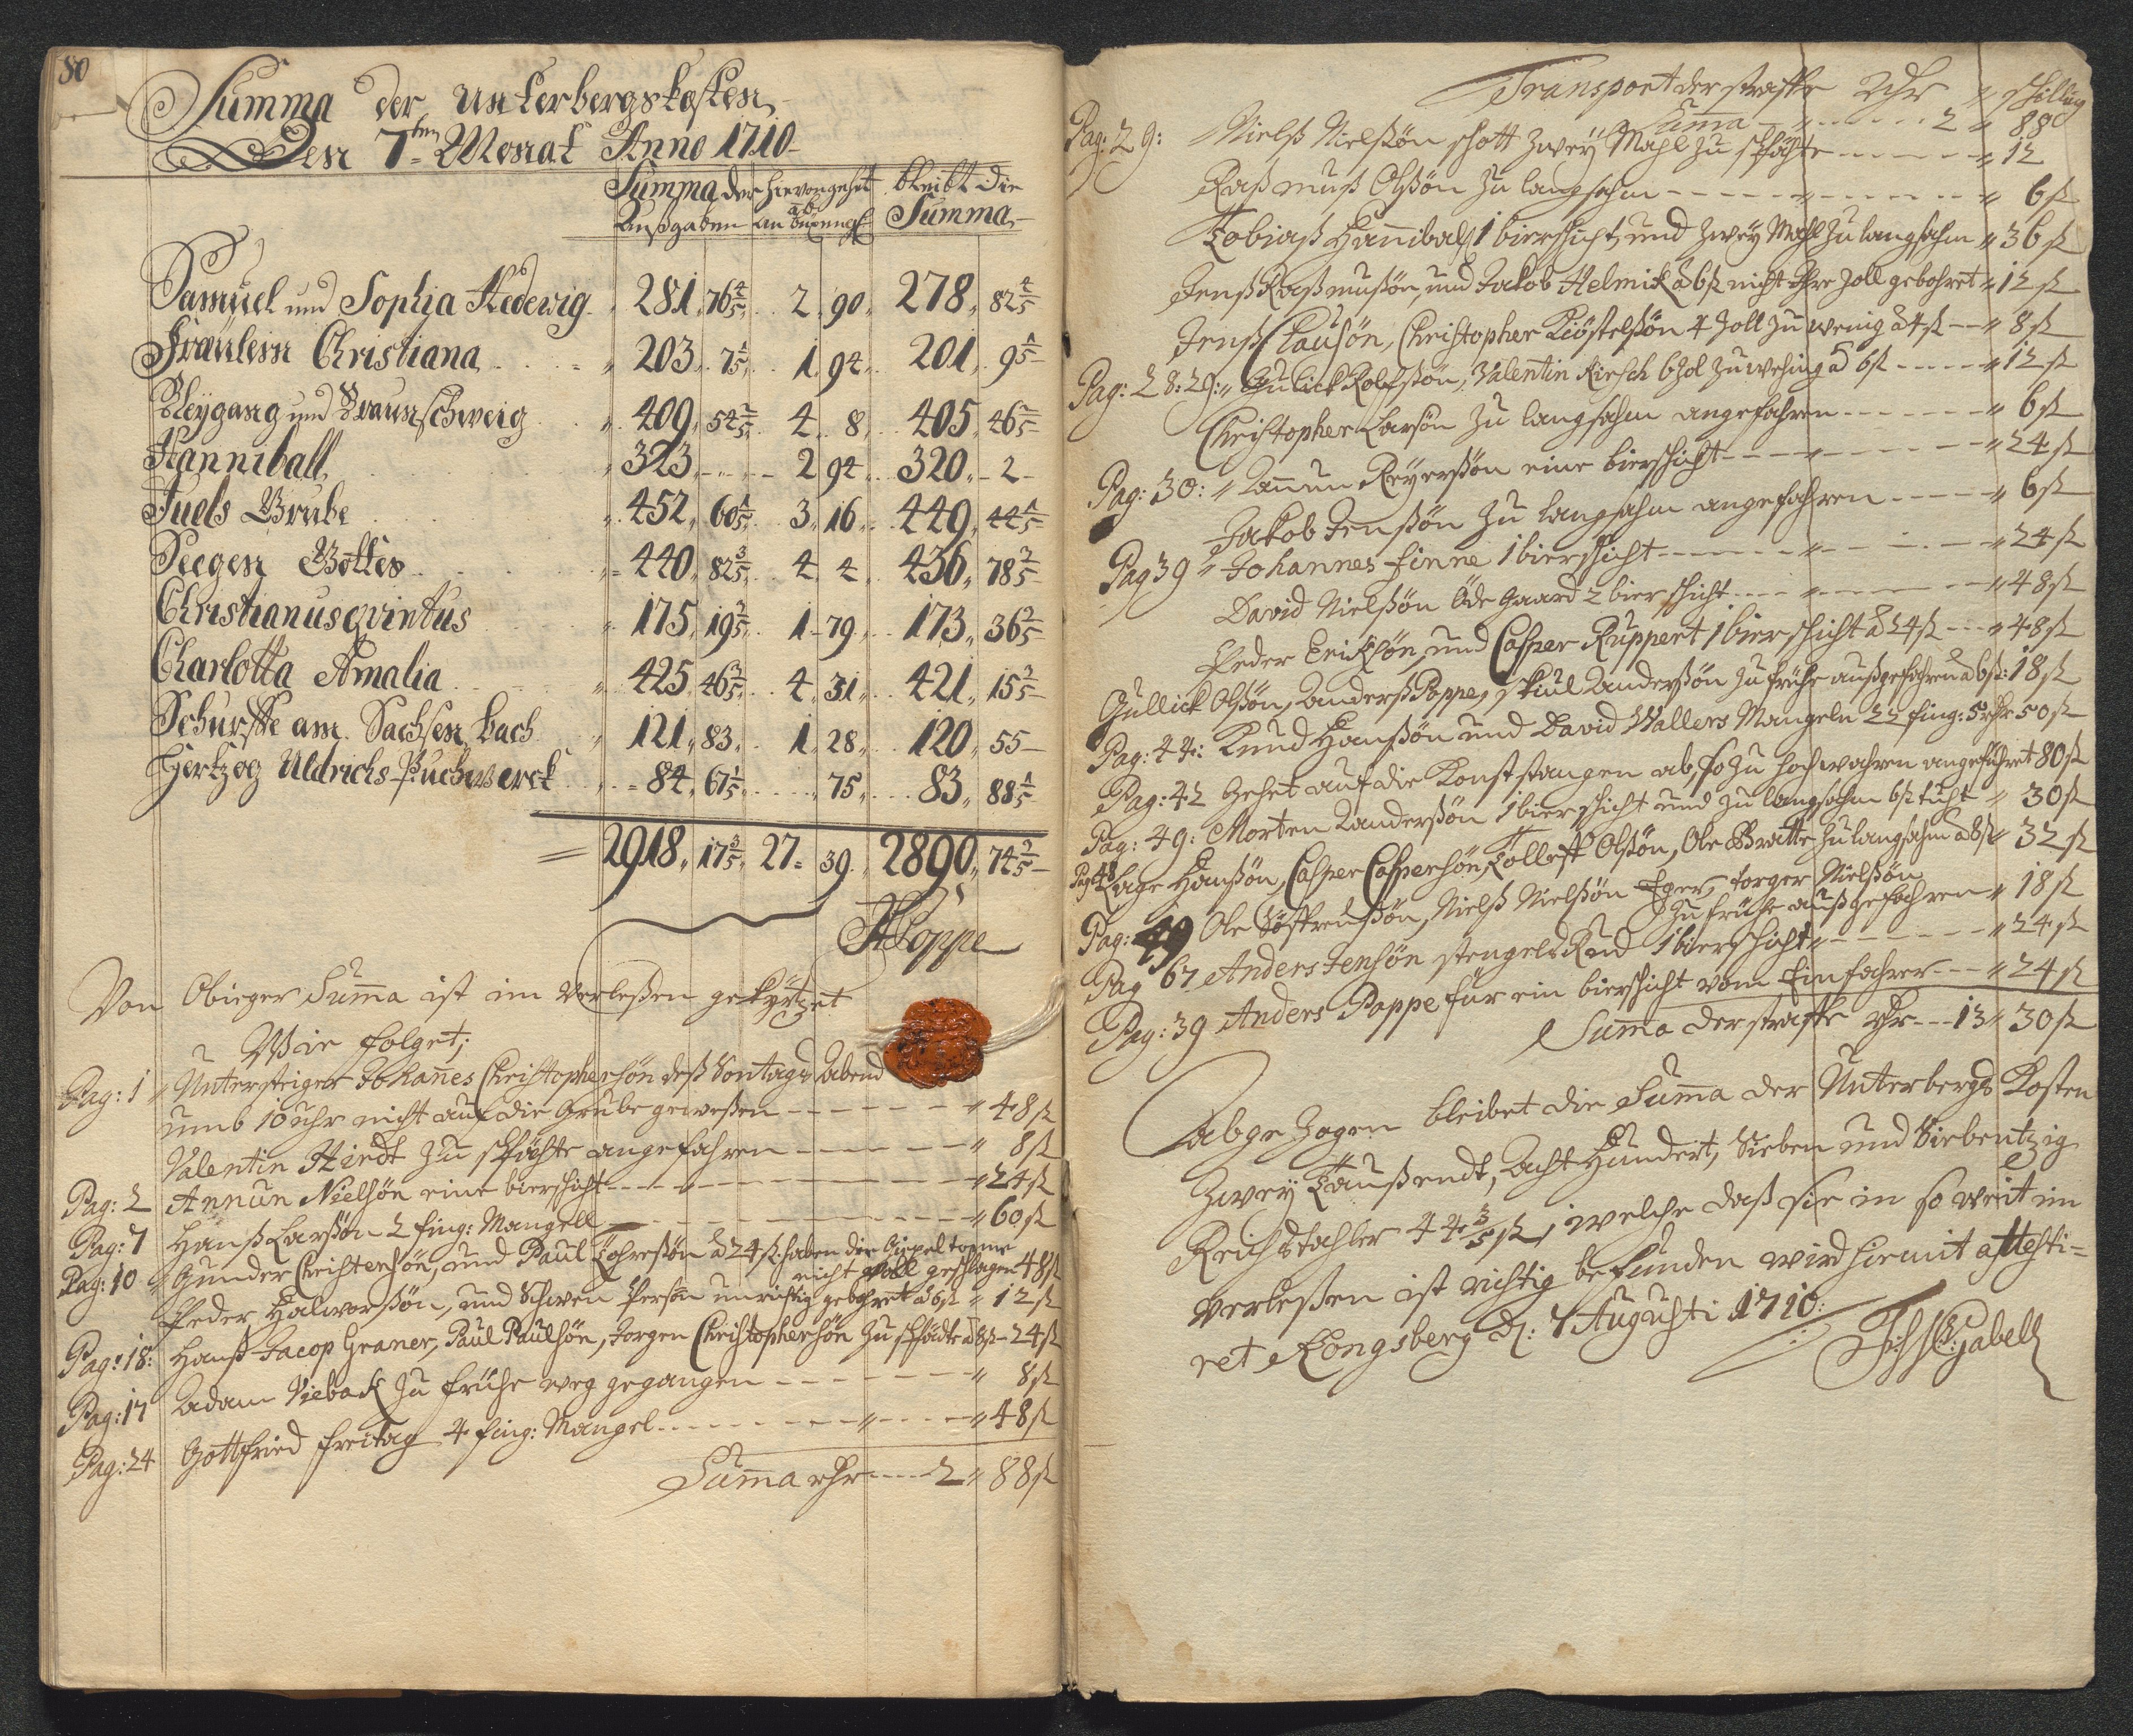 80
Summa der Unterbergskosten
Den 7ten Monat Anno 1710
Summa der Hievon gehet bleibt die
Außgaben an Summa
Samuel und Sophia Hedewig 281 76 4/5 2 90 278 82 4/5
Fräulein Christiana 203 7 1/5 1 94 201 9 1/5
Bleygang und Braunschweig 409 54 2/5 4 8 405 46 2/5
Hanniball 323 2 94 320 2
Juels Grube 452 60 1/5 3 16 449 44 1/5
Seegen Gottes 440 82 3/5 4 4 436 78 3/5
Christianus qvintus 175 19 2/5 1 79 173 36 2/5
Charlotta Amalia 425 46 2/5 4 31 421 15 2/5
Schurffe am Sachsen bach 121 83 1 28 120 55
Hertzog Uldrichs Puchwerck 84 67 1/5 75 83 88 1/5
2918 17 3/5 27 39 2890 74 2/5
Poppe
Von Obieger Summa ist im Verleßen gekürtzet
Wie folget;
Pag: 1 Untersteiger Johannes Christophersön deß Sontags Abend
umb 10 uhr nicht auf die Grube geweßen 48 ß
Valentin Hirdt zu späthe angefahren 8 ß
Pag: 2 Annun Nielsön eine bierschicht 24 ß
Pag: 7 Hanß Larßön 2 fing: Mangell 60 ß
Pag: 10 Gunder Christensön, und Paul Tohreßön à 24 ß: haben die Gippel tonne
nicht voll geschlagen 48 ß
Peder Halworßön, und Schwen Persön unrichtig gebohret à 6 ß 12 ß
Pag: 18: Hanß Jacop Graner, Paul Paulsön, Jorgen Christophersön zu späte à 8 ß 24 ß
Pag: 17 Adam Vieback zu frühe weg gegangen 8 ß
Pag: 24 Gottfried Freitag 4 fing: Mangel 48 ß
Summa rthr 2 88 ß
Transport der straffe Rthr schilling
Summa 2 88
Pag: 29: Nielß Nielßön schott zweÿ Mahl zu späthe 12
Raßmuß Olßön zu langsahm 6 ß
Tobiaß Hannibal 1 bierschicht, und zweÿ Mahl zu langsahm 36 ß
Jenß Raßmußön, und Jakob Helmick à 6 ß nicht Ihre zoll gebohret 12 ß
Jenß Claußön, Christopher Kiöstelßön 4 Zoll zu wenig à 4 ß 8 ß
Pag: 28: 29: Gulick Rolfßön, Valentin Kirsch 6 zol zu wehing à 6 ß 12 ß
Christopher Larsön zu langsahm angefahren 6 ß
Pag: 30: Annun Reÿerßön eine bierschicht 24 ß
Jakob Jenßön zu langsahm angefahren 6 ß
Pag 39 Johannes Finne 1 bierschicht 24 ß
David Nielßön Öde Gaard 2 bier schicht 48 ß
Peder Ericksön, und Casper Ruppert 1 bier schicht à 24 ß 48 ß
Gullick Olßön, Anderß Poppe, Skiul Anderßön zu frühe außgefahren à 6 ß: 18 ß
Pag: 44: Knud Hanßön und David Wallers Mangeln 22 fing: 5 rthr 50 ß
Pag: 42 Gehet auf die Konststangen ab, so zu hoch wahren angeführet 80 ß
Pag: 49: Morten Anderßön 1 bierschicht und zu langsahm 6 ß 30 ß
Pag: 48 Lage Hanßön, Casper Caspersön, Tolleff Olßön, Ole Bratte zu langsahm à 8 ß 32 ß
Pag: 49 Ole Nielß Nielßön Eger, Torger Nielßön
zu frühe auß gefahren 18 ß
Pag 67 Anders Jensön 1 bierschicht 24 ß
Pag: 39 Anders Poppe für ein bierschicht vom Einfahrer 24 ß
Summa der straffe rthr 13 30 ß
abgezogen bleibet die Summa der Unterbergs Kosten
Zweÿ Taußendt, Acht Hundert, Sieben und Siebentzig
Reichsthaler 44 3/5 ß, welche daß sie in so weit im
Verleßen ist richtig befunden wird hiermit attesti=
ret Kongsberg d: 7 Augusti 1710: